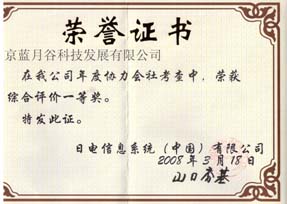 荣誉证书
京蓝月谷科技发展有限公司
在我公司年度协力会社考查中，荣获
综合评价一等奖。
特发此证。
日电信息系统（中国）有限公司
2008年3月18日
山口